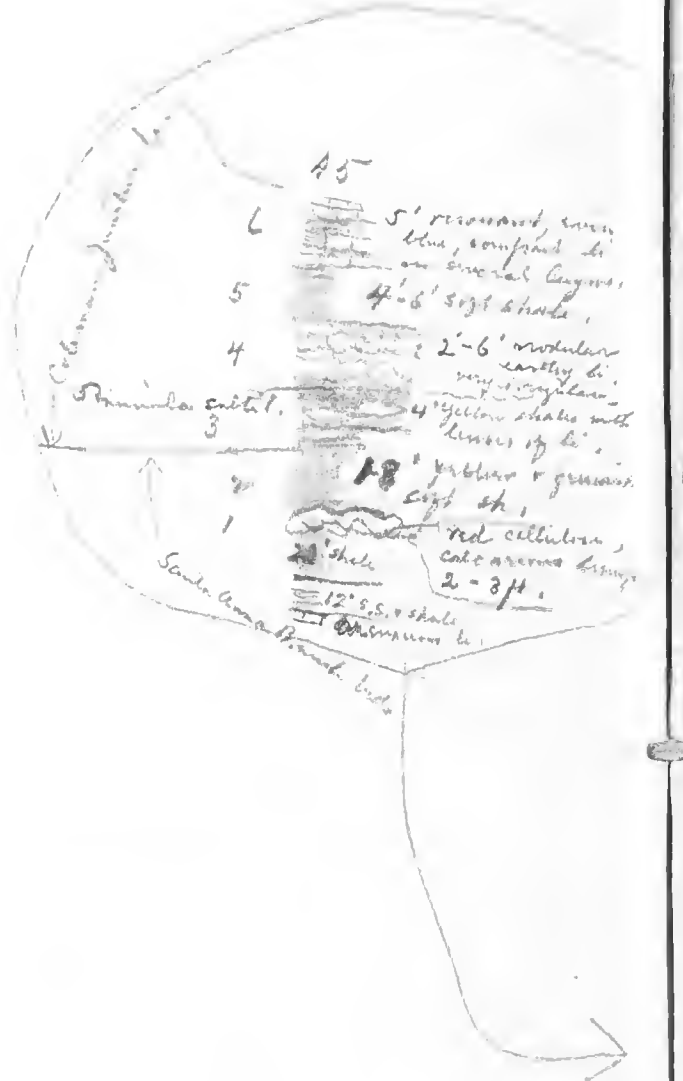 Coleman Junction li.
A5
6
5' resonant, even
blue, compact li
in several layers.
5
4'-6' soft shale.
4
2'-6' nodular
earthy li
very irregular.
3
4' yellow shales with
lenses of li.
2
18' yellow & greenish
soft sh.
1
red cellular,
calcareous
2 - 3 ft.
20' shale
12' s.s. & shale
li.
Santa Anna Branch bed.